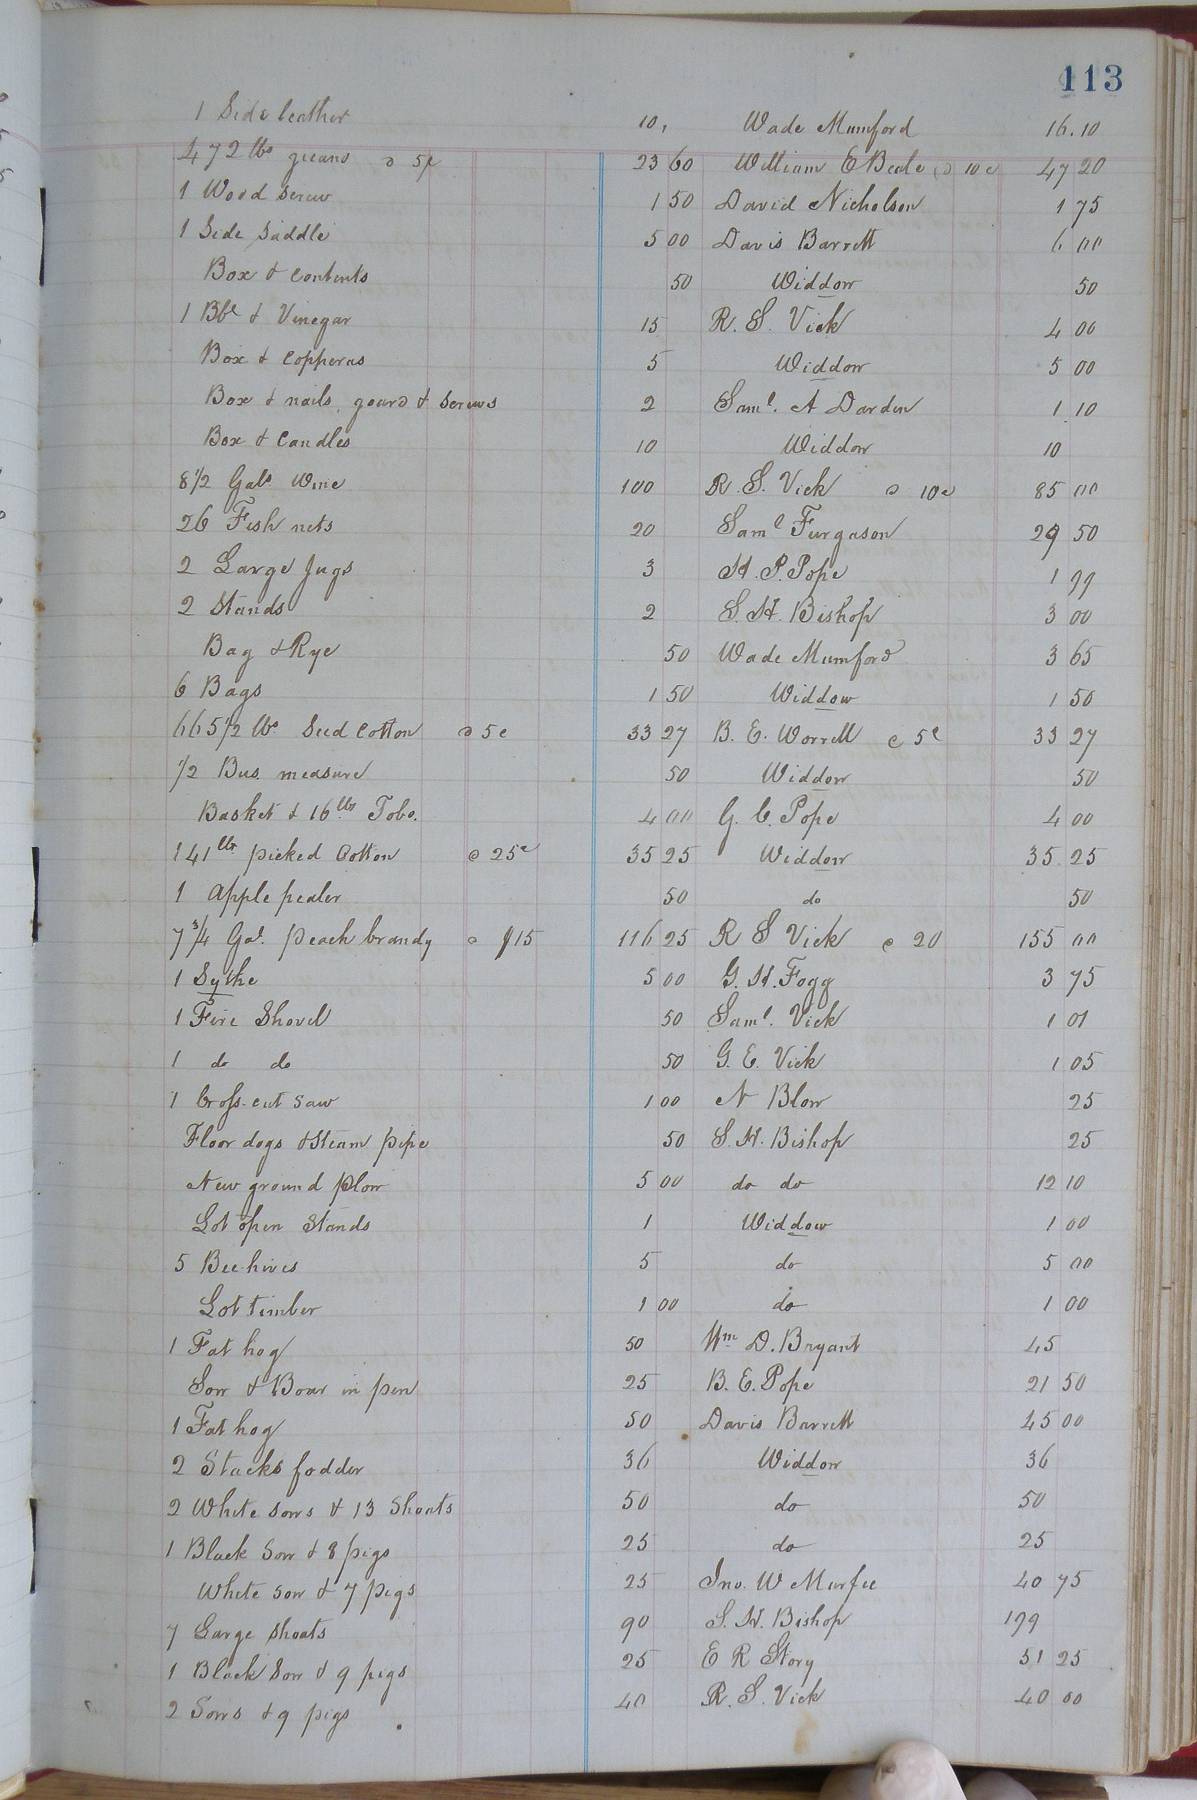 113
1 Side leather 10, Wade Mumford 16.10
472 lbs @ 5c 23 60 William E Beale @ 10c 47 20
1 Wood Screw 1 50 David Nicholson 1 75
1 Side Saddle 5 00 Davis Barrett 6 00
Box & Contents 50 Widdow 50
1 Bbl & Vinegar 15 R. S. Vick 4 00
Box & Copperas 5 Widdow 5 00
Box & nails, gourd & screws 2 Saml. A Darden 1 10
Box & Candles 10 Widdow 10
8 1/2 Gals. Wine 100 R. S. Vick @ 10c 85 00
26 Fish nets 20 Saml Furgason 29 50
2 Large Jugs 3 H. P. Pope 1 99
2 Stands 2 S. H. Bishop 3 00
Bag & Rye 50 Wade Mumford 3 65
6 Bags 1 50 Widdow 1 50
665 1/2 lbs Seed Cotton @ 5c 33 27 B. E. Worrell @ 5c 33 27
1/2 Bus. measure 50 Widdow 50
Basket & 16 lbs Tobo. 4 00 G. C. Pope 4 00
141 lbs picked Cotton @ 25c 35 25 Widdow 35 25
1 Apple pealer 50 do 50
7 3/4 Gal. peach brandy @ $15 116 25 R S Vick @ 20 155 00
1 Sythe 5 00 G. H. Fogg 3 75
1 Fire Shovel 50 Saml. Vick 1 01
1 do do 50 G. E. Vick 1 05
1 Cross-cut saw 1 00 N Blow 25
Floor dogs & Steam pipe 50 S. H. Bishop 25
New ground plow 5 00 do do 12 10
Lot open Stands 1 Widdow 1 00
5 Bee-hives 5 do 5 00
Lot timber 1 00 do 1 00
1 Fat hog 50 Wm D. Bryant 45
Sow & Boar in pen 25 B. E. Pope 21 50
1 Fat hog 50 Davis Barrett 45 00
2 Stacks fodder 36 Widdow 36
2 White sows & 13 Shoats 50 do 50
1 Black Sow & 8 pigs 25 do 25
White sow & 7 pigs 25 Jno. W Murfee 40 75
7 Large shoats 90 S. H. Bishop 199
1 Black Sow & 9 pigs 25 E R Story 51 25
2 Sows & 9 pigs 40 R. S. Vick 40 00